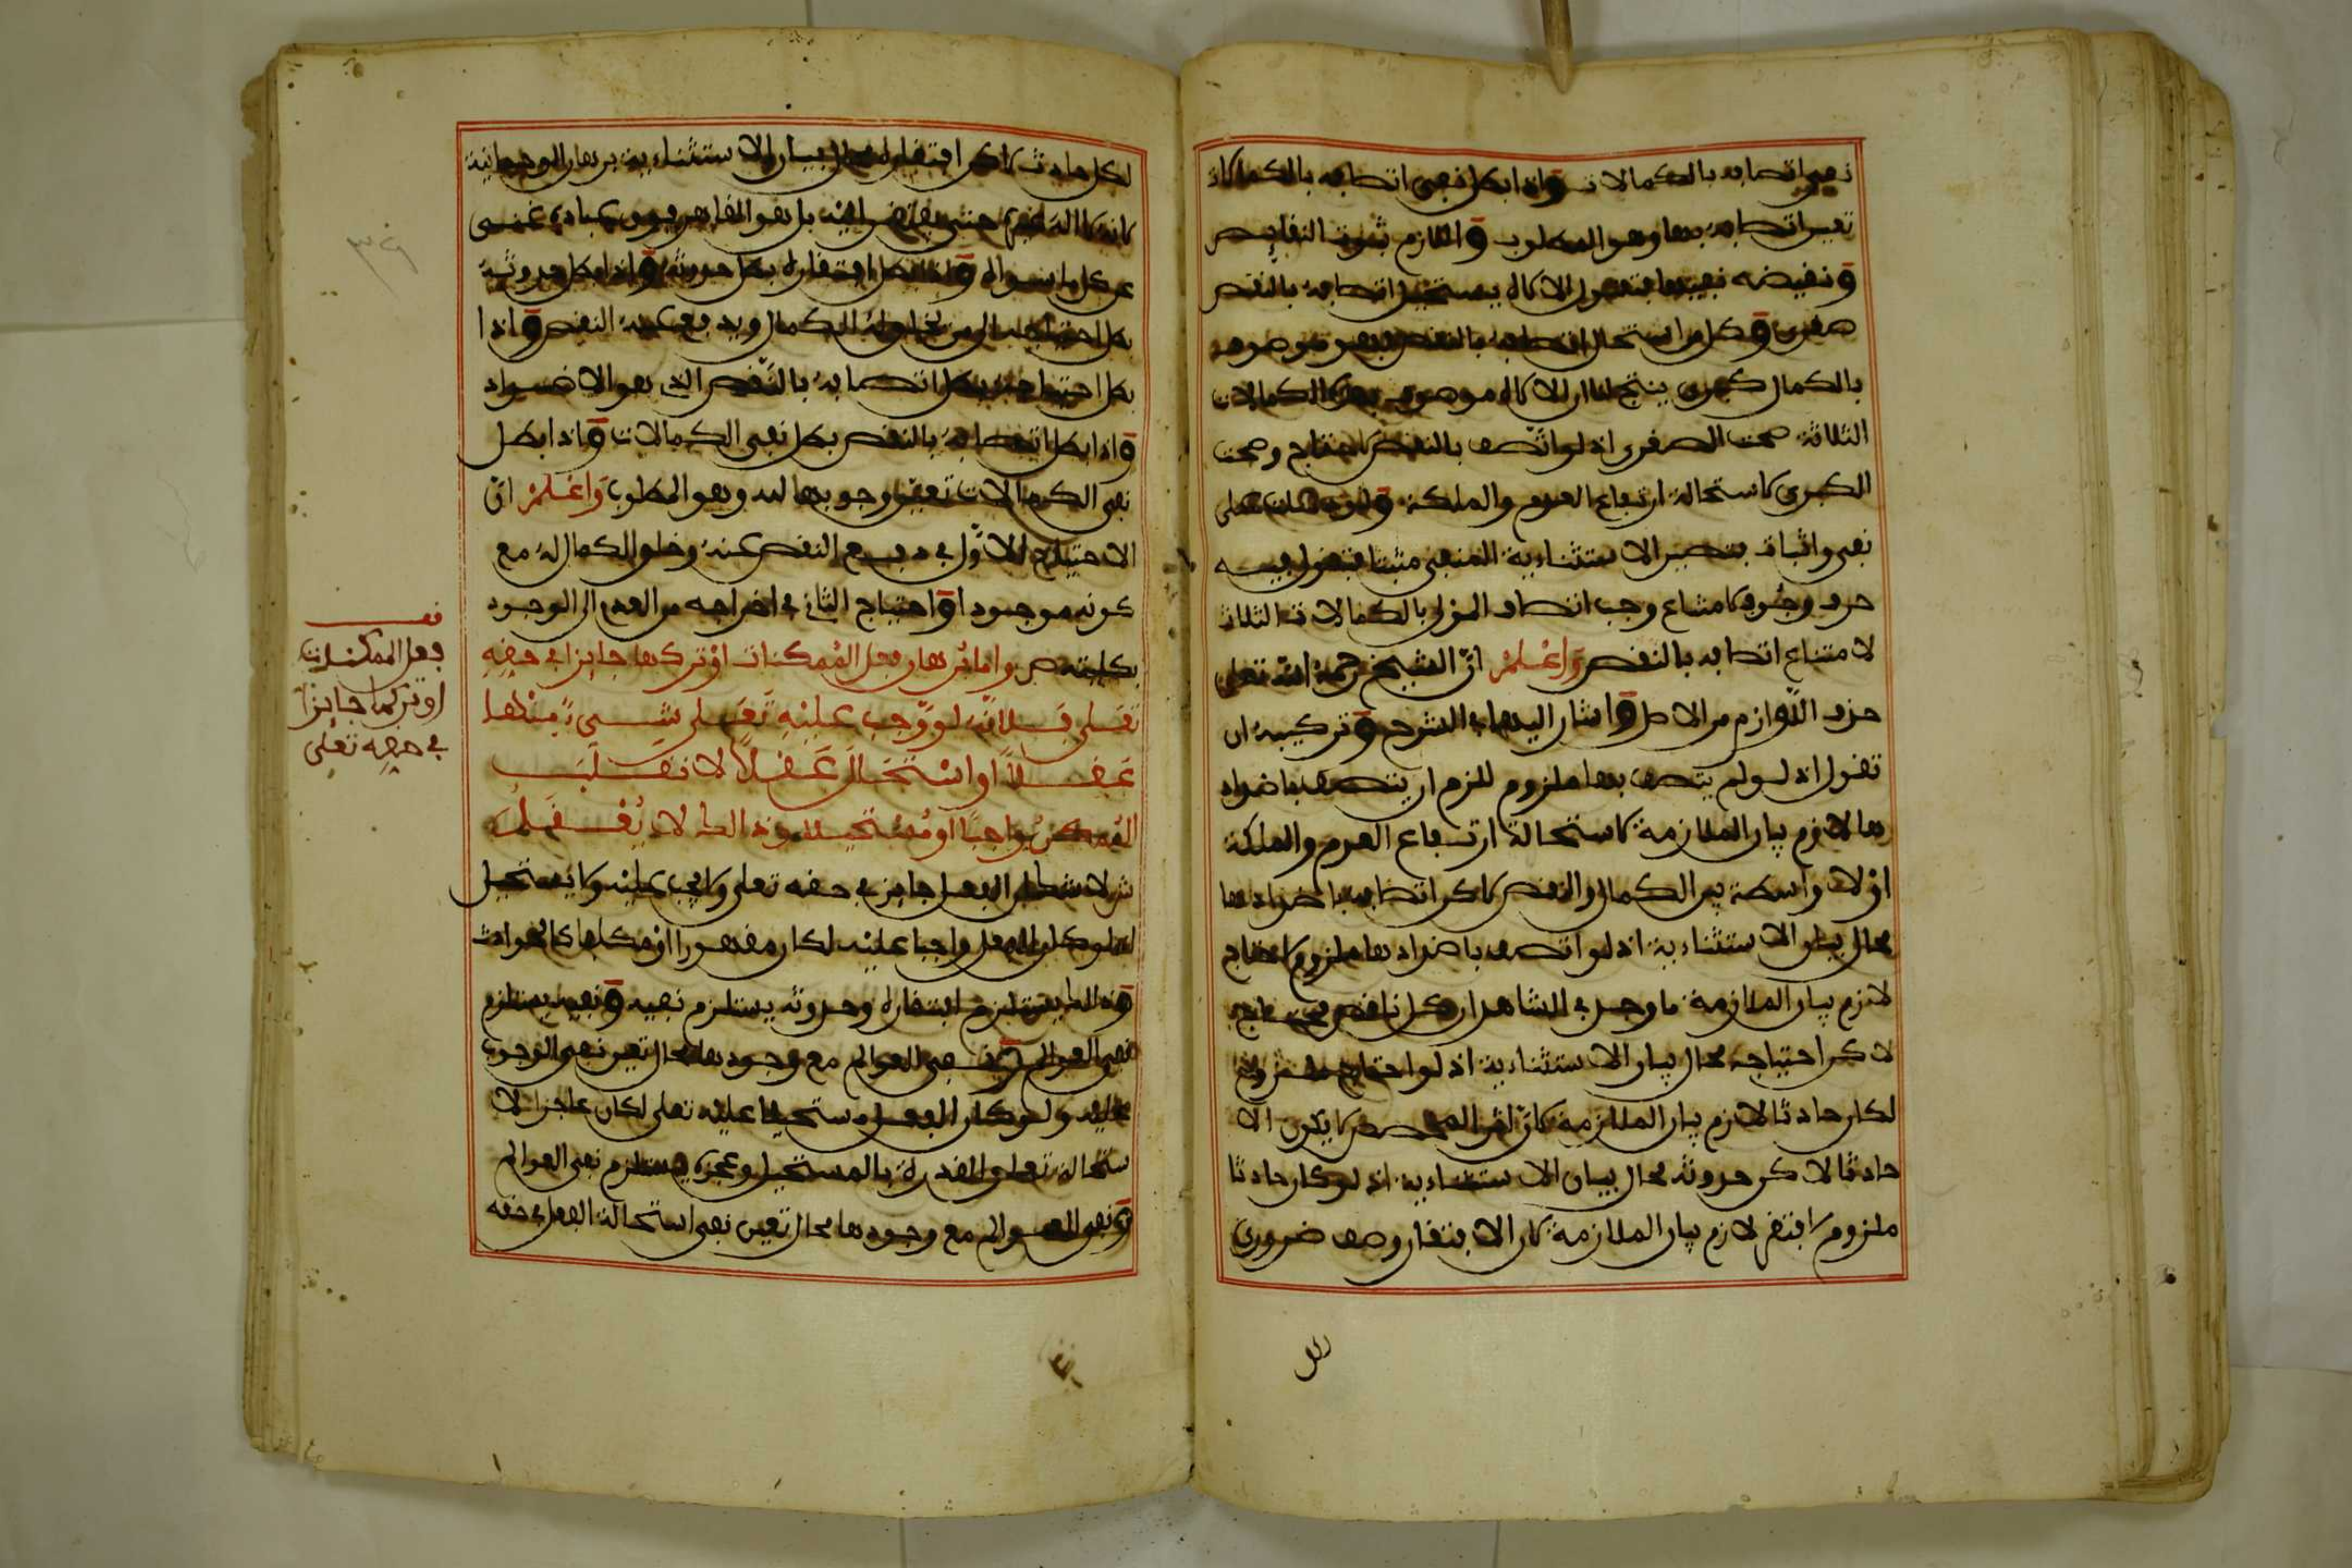 نفي اتصافه بالكمالات واذا بطل نفي اتصافه بالكمالات
تعين اتصافه بها وهو المطلوب واللازم ثبوت النقايص
ونقيضه نفيها فتقول الاله يستحيل اتصافه بالنقص
صغرى وكل من استحال اتصافه بالنقص فهو موصوف
بالكمال كبرى ينتج لنا ان الاله موصوف بهذه الكمالات
الثلاثة صحت الصغرى اذ لو اتصف بالنقص لاحتاج وصحت
الكبرى لاستحالة ارتفاع العدم والملكة
نفي واثبات فتصير الاستثناءية المنفي مثبتا فتقول فيه
حرف وجوب لامتناع وجب اتصاف المولى بالكمالات الثلاث
لامتناع اتصافه بالنقص وَاعْلَمْ انّ الشيخ رحمه الله تعلى
حذف اللّوازم من الاصل واشار اليها في الشرح وتركيبه ان
تقول اذ لو لم يتصف بها ملزوم للزم ان يتصف باضداد
ها لازم بيان الملازمة لاستحالة ارتفاع العدم والملكة
اوْ لا واسطة بين الكمال والنقص لاكن اتصافه باضدادها
محال بيان الاستثناءية اذ لو اتصف باضدادها ملزوم لاحتاج
لازم بيان الملازمة ما وجد في الشاهد ان كل ناقص محتاج
لاكن احتياجه محال بيان الاستثناءية اذ لو احتاج ملزوم
لكان حادثا لازم بيان الملازمة لانّ المخصص لا يكون الا
حادثا لاكن حدوثه محال بيان الاستثناءية اذ لو كان حادثا
ملزوم افتقر لازم بيان الملازمة لان الافتقار وصف ضروري
لكل حادث لاكن افتقاره محال بيان الاستثناءية برهان الوحدانية
بل هو القاهر فوق عباده غني
عن كل ما سواه واذا بطل افتقاره بطل حدوثه واذا بطل حدوثه
بطل احتياجه الى من يحصل له الكمال ويدفع عنه النقص واذا
بطل احتياجه بطل اتصافه بالنّقص الذي هو الاضداد
واذا بطل اتصافه بالنقص بطل نفي الكمالات واذا بطل
نفي الكمالات تعين وجوبها له وهو المطلوب وَاعْلَمْ انّ
الاحتياج الاوّل في دفع النقص عنه وخلو الكمال له مع
كونه موجودا واحتياج الثاني في اخراجه من العدم الى الوجود
بكليته ص واما برهان فعل الممكنات اوْ تركها جايزا في حقه
تعلى فلانّه لو وَجب عليْهِ تَعلى شيء مِنها
عَقْلاً او اسْتَحَالَ عَقْلاً لانقلبَ
المُمكن وَاجبًا او مُسْتحيلا وذالك لا يُعْقَل
ش لا شك ان الفعل جايز في حقه تعلى ولا يجب عليْه ولا يستحيل
لانه لو كان الفعل واجبا عليْه لكان مقهورا او مكلفا كالحوادث
وذالك يستلزم افتقاره وحدوثه يستلزم نفيه ونفيه يستلزم
نفي العوالم ونفي العوالم مع وجودها محال تعين نفي الوجوب
عليه ولو كان الفعل مستحيلا عليْه تعلى لكان عاجزا لا
ستحالة تعلق القدرة بالمستحيل وعجزه يستلزم نفي العوالم
ونفي العوالم مع وجودها محال تعين نفي استحالة الفعل في حقه
فعل الممكنات
او تركها جايزا
في حقه تعلى